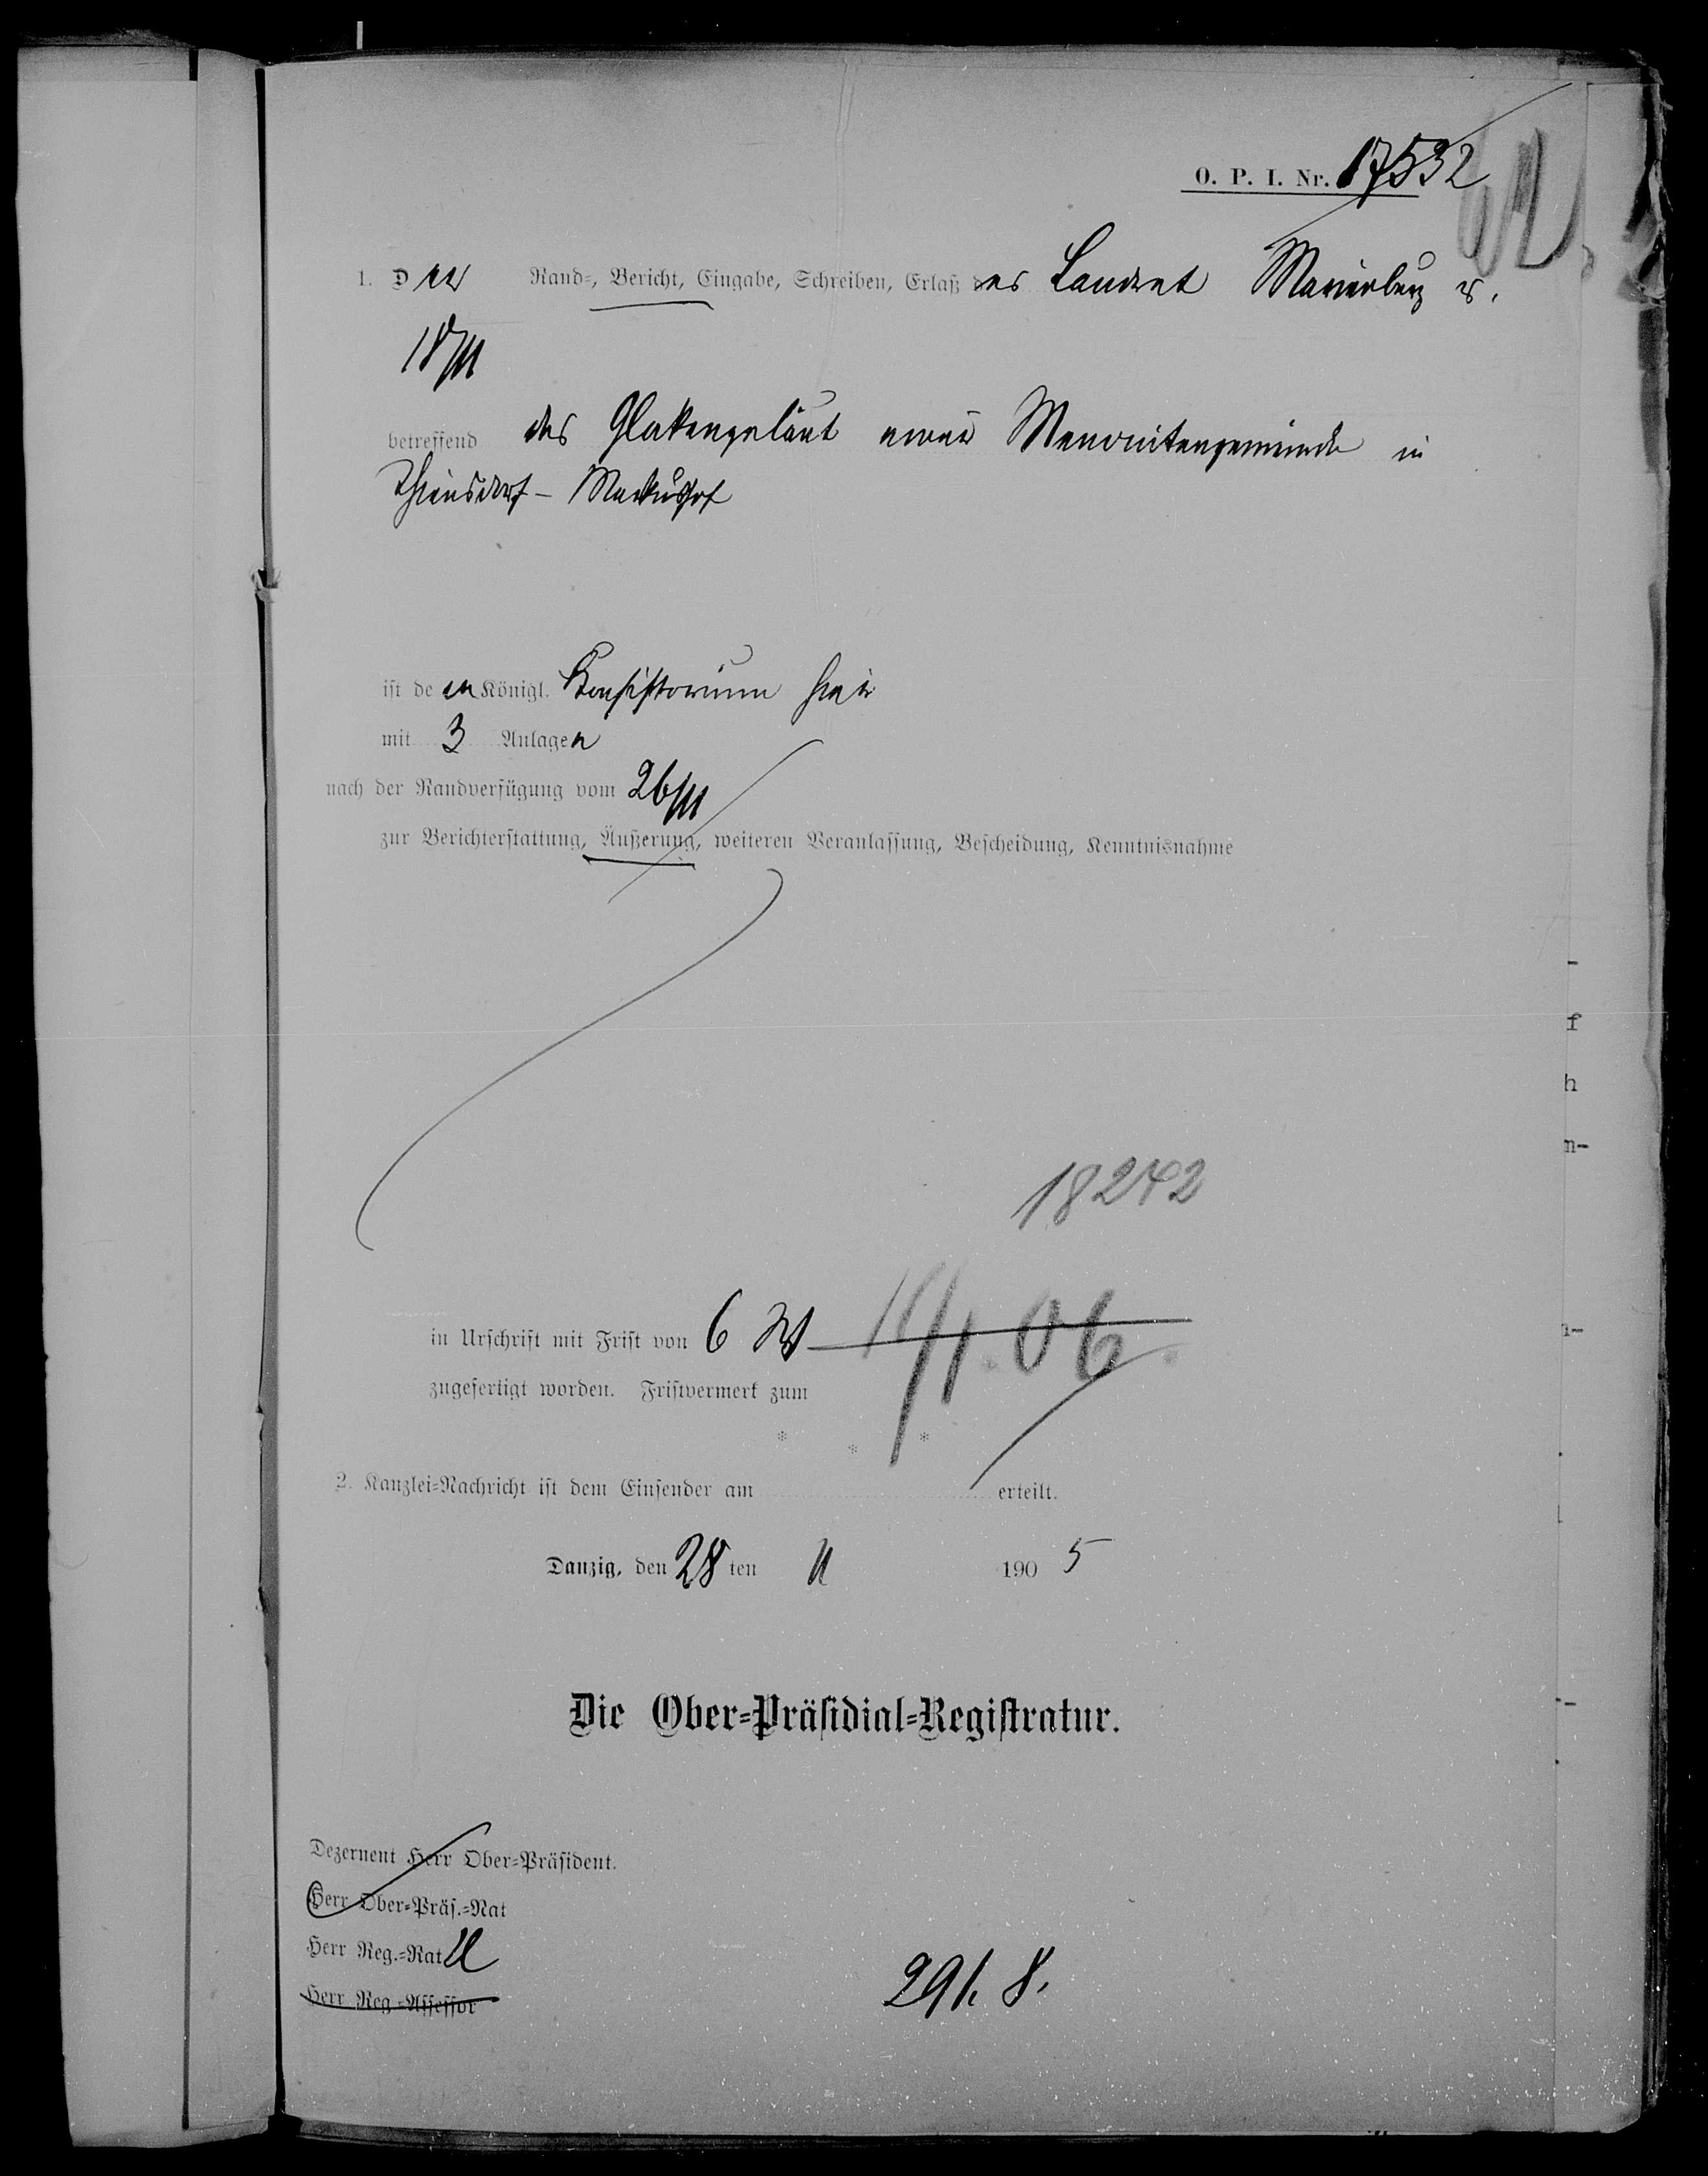 O. P. I. Nr. 17532
1. Der Rand-, Bericht, Eingabe, Schreiben, Erlaß des Landrat Marienburg v.
18/11
betreffend das Glockengeläut einer Menonitengemeinde in
Thiensdorf - Markushof
ist dem Königl. Konsistorium hier
mit 3 Anlagen
nach der Randverfügung vom 26/11
zur Berichterstattung, Äußerung, weiteren Veranlassung, Bescheidung, Kenntnisnahme
18242
in Urschrift mit Frist von 6 W
zugefertigt worden. Fristvermerk zum
* * *
2. Kanzlei-Nachricht ist dem Einsender am erteilt.
Danzig, den 28 ten 11 1905
Die Ober-Präsidial-Registratur.
Dezernent Herr Ober-Präsident.
Herr Ober-Präs.-Rat
Herr Reg.-Rat
Herr Reg.-Assessor